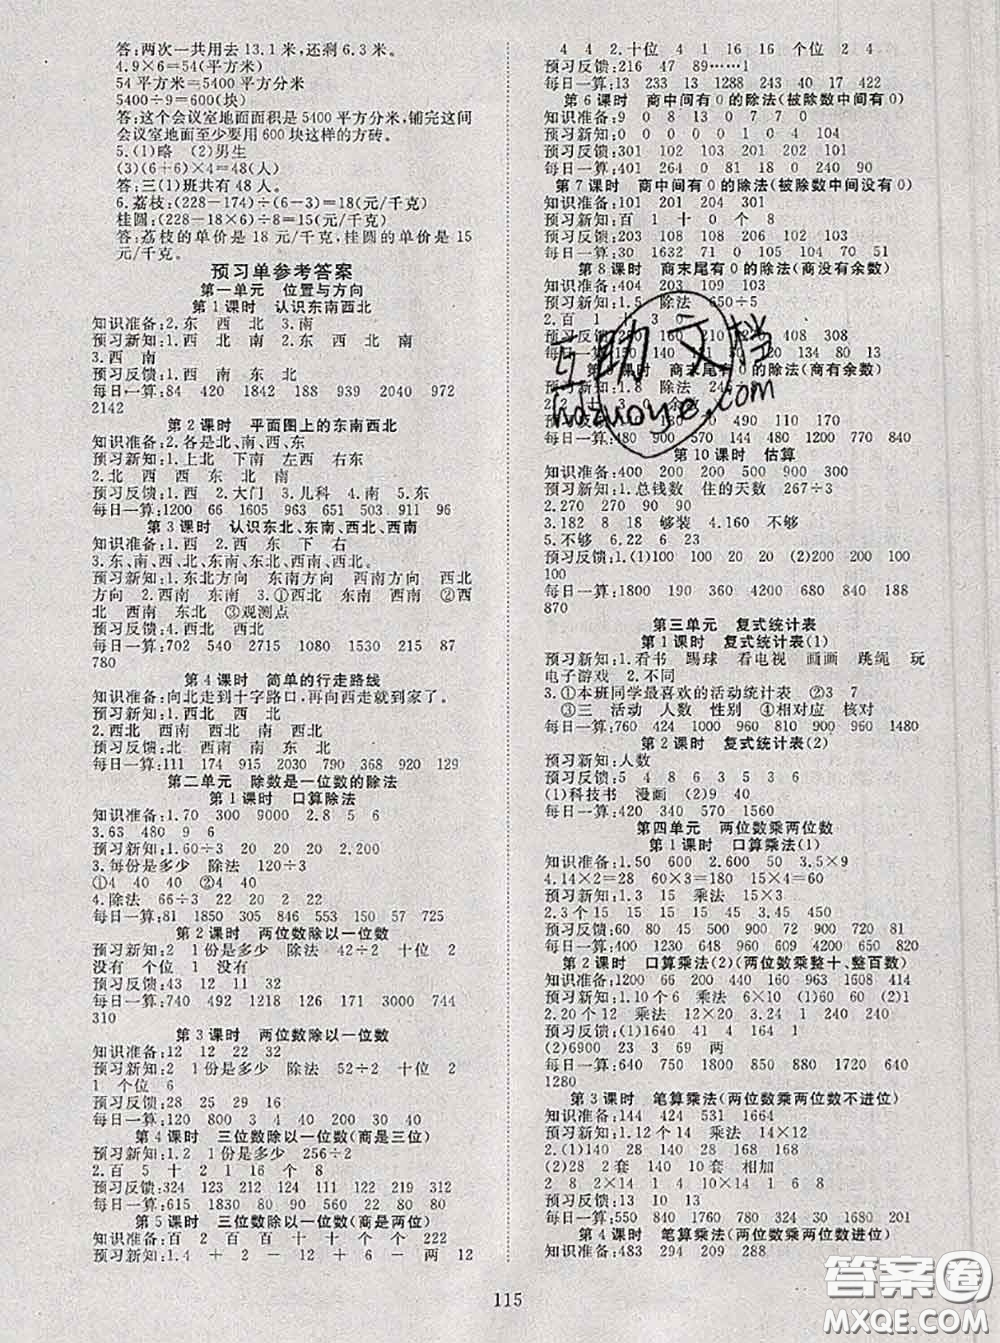 答:两次一共用去 13.1 米,还剩 6.3 米。
4.9×6=54(平方米)
54 平方米=5400 平方分米
5400÷9=600(块)
答:这个会议室地面面积是 5400 平方分米,铺完这间
会议室地面至少要用 600 块这样的方砖。
5.(1)略 (2)男生
(3)(6+6)×4=48(人)
答:三(1)班共有 48 人。
6.荔枝:(228-174)÷(6-3)=18(元/千克)
桂圆:(228-18×6)÷8=15(元/千克)
答:荔枝的单价是 18 元/千克,桂圆的单价是 15
元/千克。
预习单参考答案
第一单元 位置与方向
第 1 课时 认识东南西北
知识准备:2.东 西 北 3.南
预习新知:1.西 北 南 2.东 西 北 南
3.西 南
预习反馈:1.西 南 东 北
每日一算:84 420 1842 488 1530 2166 642
2142
第 2 课时 平面图上的东南西北
知识准备:2.各是北、西、南、东
预习新知:1.上北 下南 左西 右东
2.北 西 西 东 北 南
预习反馈:1.西 2.大门 3.儿科 4.南 5.南
每日一算:1200 66 1605 963 651 503 911 96
第 3 课时 认识东北、东南、西北、西南
知识准备:1.北 2.西 东 下 右
3.东、南、西、北、东南、东北、西南、西北。
预习新知:1.东北方向 东南方向 西南方向 西北
方向 2.西南 西北 东南 3.①西南 西南 ②西
北 西南 东北 ③观测点
预习反馈:4.西北 西南
每日一算:702 540 2715 1080 1530 1239 87
780
第 4 课时 简单的行走路线
知识准备:向北走到十字路口,再向西走就到家了。
预习新知:1.西北 西
2.西北 西南 西南 西北
预习反馈:北 西南 南 东 东北
每日一算:111 174 915 2030 790 960 900 130
第二单元 除数是一位数的除法
第 1 课时 口算除法
知识准备:1.70 300 9000 2.8 5 6
3.63 480 9 6
预习新知:1.60÷3 20 20 20 2.200
3.每份是多少 除法 120÷3
①4 40 40 ②4 40
4.除法 66÷3 22 20 2 22
每日一算:81 1850 305 846 553 150 57 725
第 2 课时 两位数除以一位数
预习新知:2 1份是多少 除法 42÷2 十位 2
没有 个位 1 没有
预习反馈:43 12 11 32
每日一算:740 492 1218 126 171 1000 444
310
第 3 课时 两位数除以一位数
知识准备:12 12 22 32
预习新知:2 1份是多少 除法 52÷2 十位 2
1 个位 6
预习反馈:28 25 29 16
每日一算:1200 800 3 4 40 200 30 40
第 4 课时 三位数除以一位数(商是三位)
预习新知:1.2 1份是多少 256÷2
2.百 5 十 2 1 16 个 8
预习反馈:324 123 212 124 111 122 119 312
每日一算:615 1830 80 90 56 22 80 80
第 5 课时 三位数除以一位数(商是两位)
知识准备:百 2 百 百 十 十 个 个 222
预习新知:1.4 + 2 - 6 - 两 12
4 4 2.十位 4 1 16 16 个位 2 4
预习反馈:216 47 89……1
每日一算:13 233 13 1288 243 40 17 422
第 6 课时 商中间有 0 的除法(被除数中间有 0)
知识准备:9 0 8 13 0 7 7 0
预习新知:0 0 0 0 1 0 4 104
预习反馈:301 102 103 201
每日一算:401 264 0 81 18 0 240 0
第 7 课时 商中间有 0 的除法(被除数中间没有 0)
知识准备:101 201 204 301
预习新知:百 1 十 0 个 8
预习反馈:203 108 208 109
每日一算:102 0 0 105 104 70 0 51
第 8 课时 商末尾有 0 的除法(商没有余数)
预习新知:1.5 除法 650÷5
2.百 1 1 3 0
预习反馈:
第 10 课时 估算
知识准备:400 200 500 900
预习新知:1.总钱数 住的天数 267÷3
2.270 270 90 90
3.182 8 18 够装 4.160 不够
5.不够 6.22 6 23
预习反馈:1.(1)100 100 20 20 (2)1000 200
100
每日一算:1800 190 360 400 10 200 188
870
第三单元 复式统计表
第 1 课时 复式统计表(1)
预习新知:1.看书 踢球 看电视 画画 跳绳 玩
电子游戏 2.不同
3.①本班同学最喜欢的活动统计表 ②3 7
③三 活动 人数 性别 ④相对应 核对
每日一算:760 424 1000 960 810 900 960 1480
第 2 课时 复式统计表(2)
预习新知:人数
预习反馈:5 4 8 6 3 3 6 6
(1)科技书 漫画 (2)9 40
每日一算:420 340 570 1560
第四单元 两位数乘两位数
第 1 课时 口算乘法(1)
知识准备:1.50 600 2.600 50 3.5×9
4.14×2=28 60×3=180
预习新知:1.3 15 乘法 15×3
2.3个15 15×3=45
预习反馈:60 80 45 500 90 72 900 720 81
每日一算:400 1230 648 1000 80 420 650 820
第 2 课时 口算乘法(2)(两位数乘整十、整百数)
知识准备:1200 66 200 440 160 400 800 200
预习新知:1.10个6 乘法 6×10 (1)60 (2)60
2.20个12 乘法 12×20 (3)240
预习反馈:(1)1640 41 40 1640
(2)6900 23 3 69 两
每日一算:540 1500 1800 800 880 1580 640
1280
第 3 课时 笔算乘法(两位数乘两位数不进位)
知识准备:144 424 531 1664
预习新知:1.12个14 乘法 14×12
2.(1)140 28 140 28 168 168
(2)28 2套 140 10套 相加
2 8 2×14 1×14 14×10
预习反馈:13 10 130 143
每日一算:550 840 1600 750 324 30 1500 910
第 4 课时 笔算乘法(两位数乘两位数进位)
知识准备:483 294 209 288
115
互助文档
hdzuoye.com
答案圈
MXQE.COM